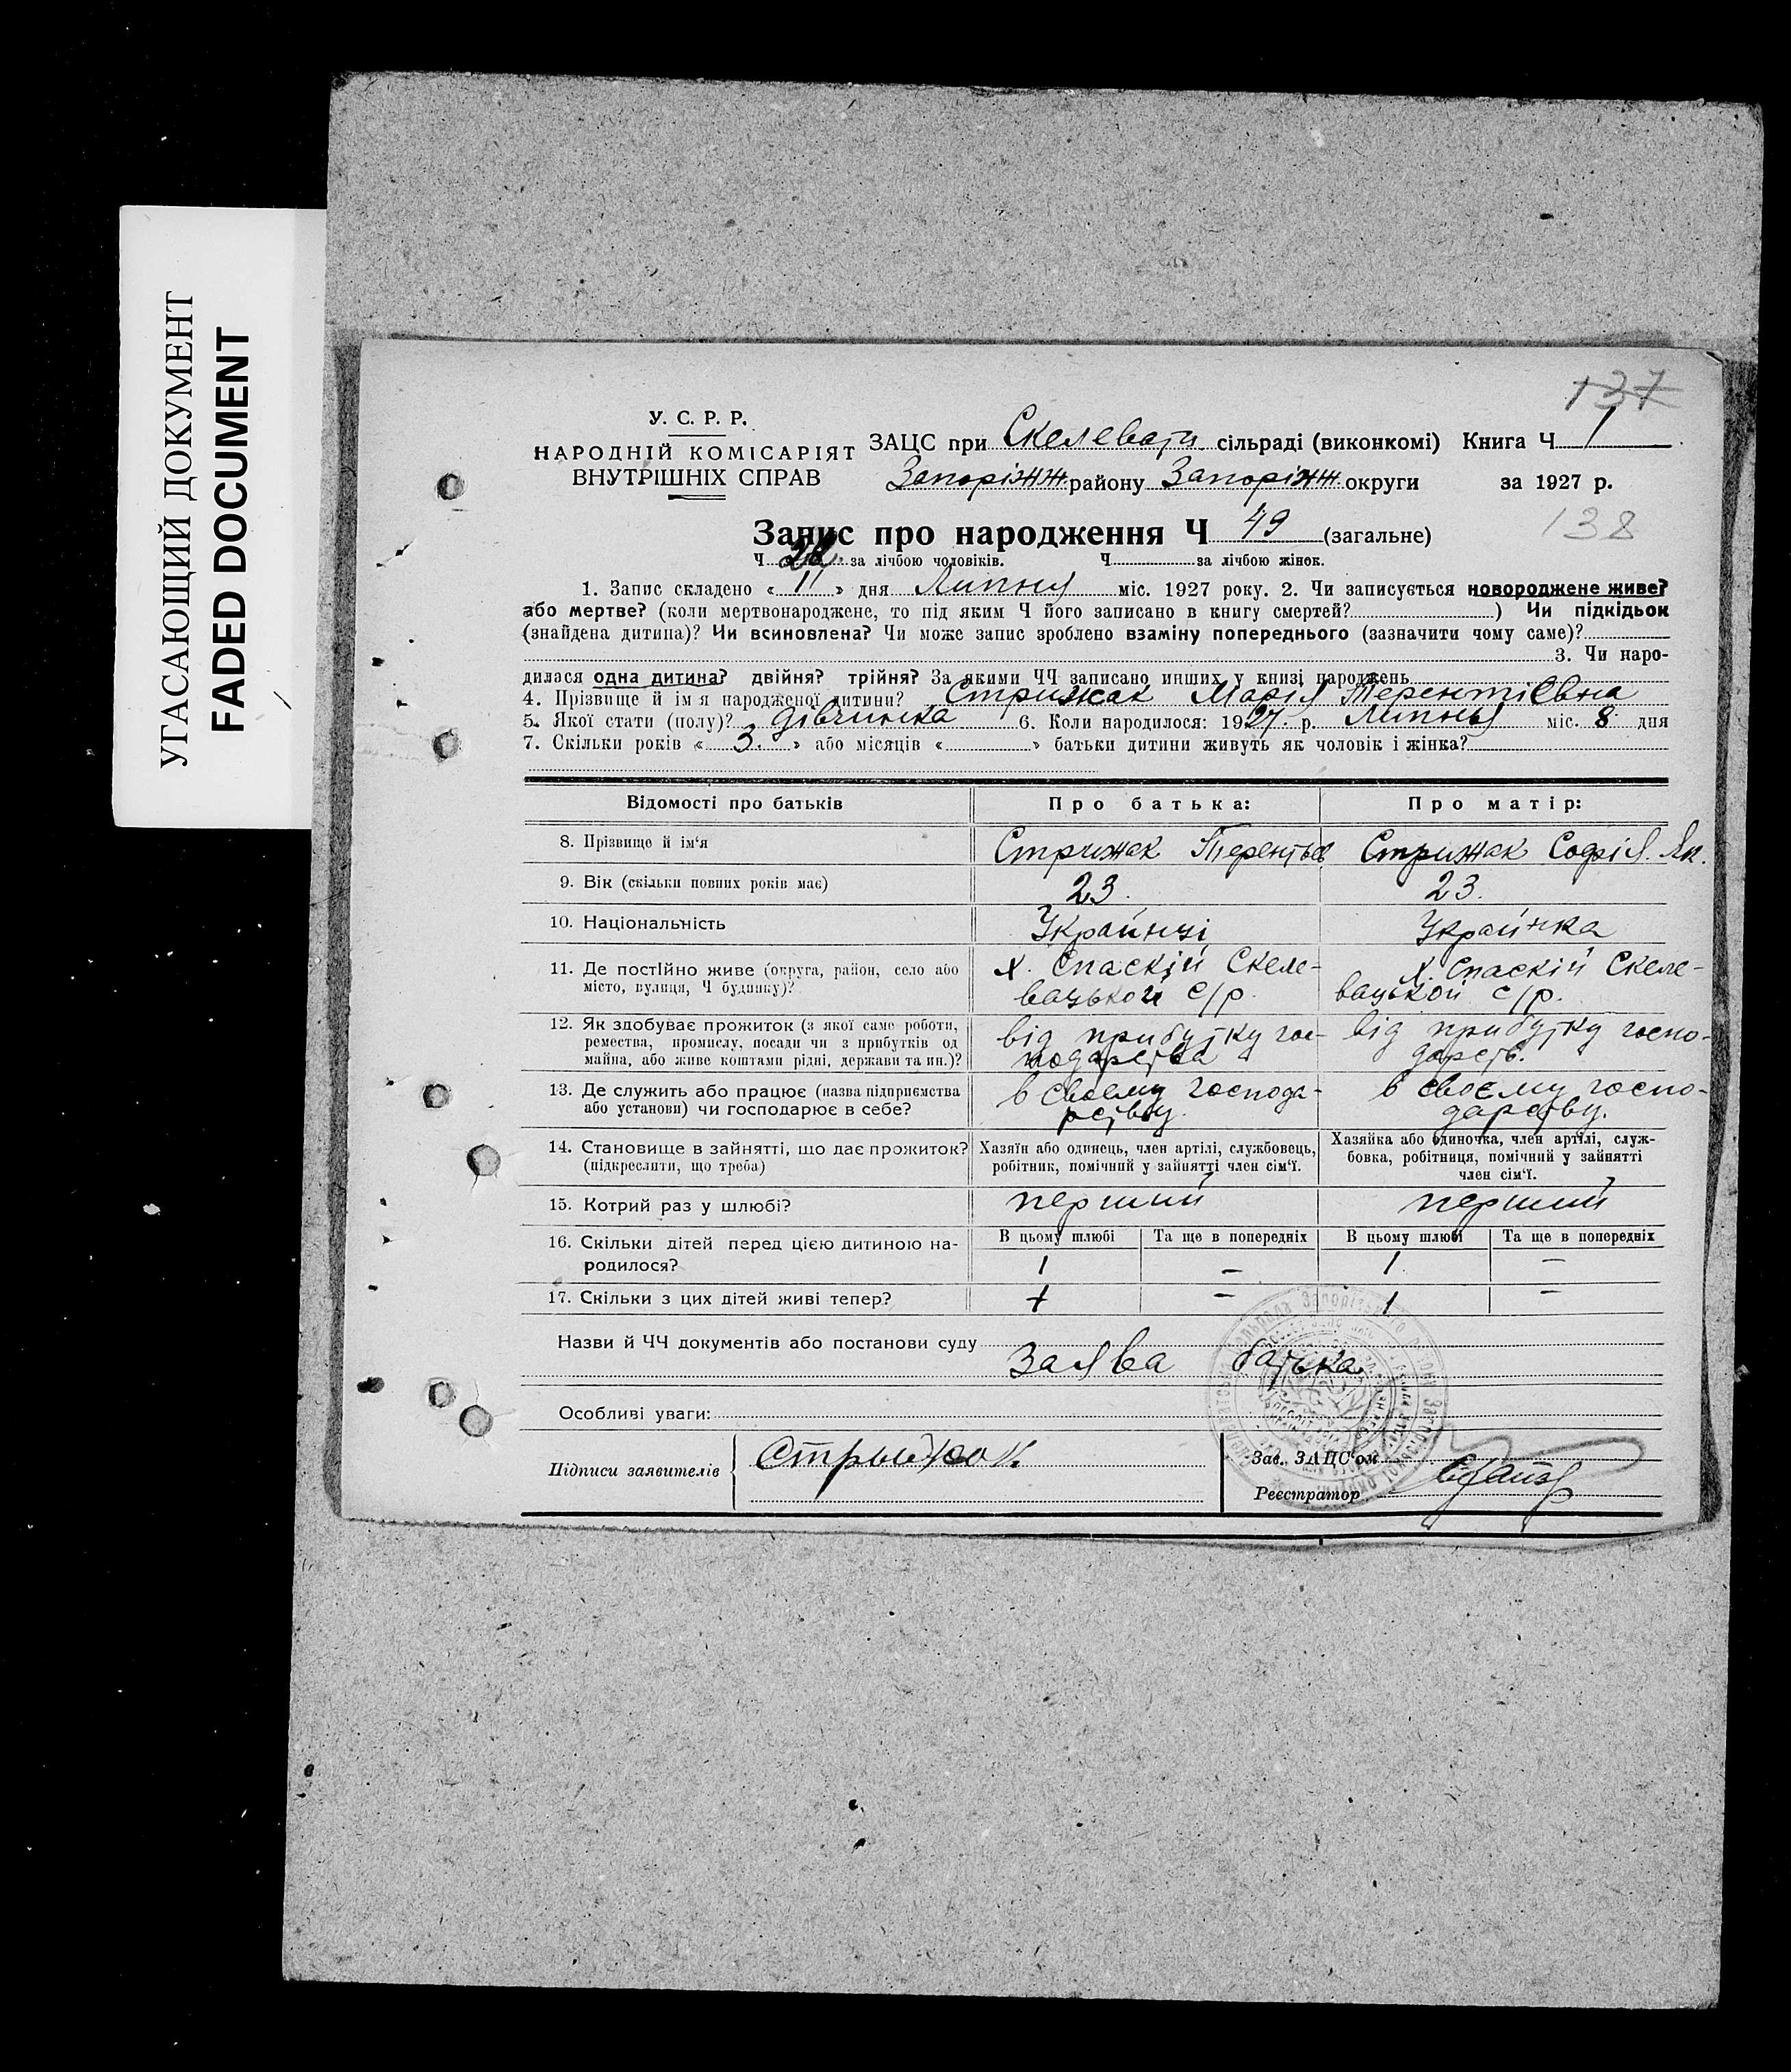 УГАСАЮЩИЙ ДОКУМЕНТ
FADED DOCUMENT
137
У. С. Р. Р.
НАРОДНІЙ КОМІСАРІЯТ
ВНУТРІШНІХ СПРАВ
ЗАЦС при Скелевати сільраді (виконкомі) Книга Ч 1
Запоріжж району Запоріжж округи за 1927 р.
138
Запис про народження Ч 49 (загальне)
Ч за лічбою чоловіків. Ч за лічбою жінок.
1. Запис складено « 11 » дня Липня міс. 1927 року. 2. Чи записується новороджене живе?
або мертве? (коли мертвонароджене, то під яким Ч його записано в книгу смертей? ) Чи підкідьок
(знайдена дитина)? Чи всиновлена? Чи може запис зроблено взаміну попереднього (зазначити чому саме)?
3. Чи наро-
дилася одна дитина? двійня? трійня? За якими ЧЧ записано инших у книзі народжень
4. Прізвище й ім'я народженої дитини? Стрижак Марія Терентієвна
5. Якої стати (полу)? дівчинка 6. Коли народилося: 1927 р. Липня міс. 8 дня
7. Скільки років « 3. » або місяців « » батьки дитини живуть як чоловік і жінка?
Відомості про батьків Про батька: Про матір:
8. Прізвище й ім'я Стрижак Стрижак Софія Як.
9. Вік (скільки повних років має) 23. 23.
10. Національність Українці Українка
11. Де постійно живе (округа, район, село або місто, вулиця, Ч будинку)?
х. Спаскій Скеле-
вацької с/р.
х. Спаскій Скеле-
вацької с/р.
12. Як здобуває прожиток (з якої саме роботи,
ремества, промислу, посади чи з прибутків од
майна, або живе коштами рідні, держави та ин.)?
від прибутку гос-
подарства
від прибутку госпо-
дарств.
13. Де служить або працює (назва підприємства
або установи) чи господарює в себе?
в своєму господа-
рству.
в своєму госпо-
дарству.
14. Становище в зайнятті, що дає прожиток?
(підкреслити, що треба)
Хазяїн або одинець, член артілі, службовець,
робітник, помічний у зайнятті член сім'ї.
Хазяйка або одиночка, член артілі, служ-
бовка, робітниця, помічний у зайнятті
член сім'ї.
15. Котрий раз у шлюбі? перший перший
16. Скільки дітей перед цією дитиною на-
родилося?
В цьому шлюбі Та ще в попередніх В цьому шлюбі Та ще в попередніх
1 – 1 –
17. Скільки з цих дітей живі тепер? 1 – 1 –
Назви й ЧЧ документів або постанови суду
Заява батька
Особливі уваги:
Підписи заявителів Стрыжак
Зав. ЗАЦС'ом
Реєстратор